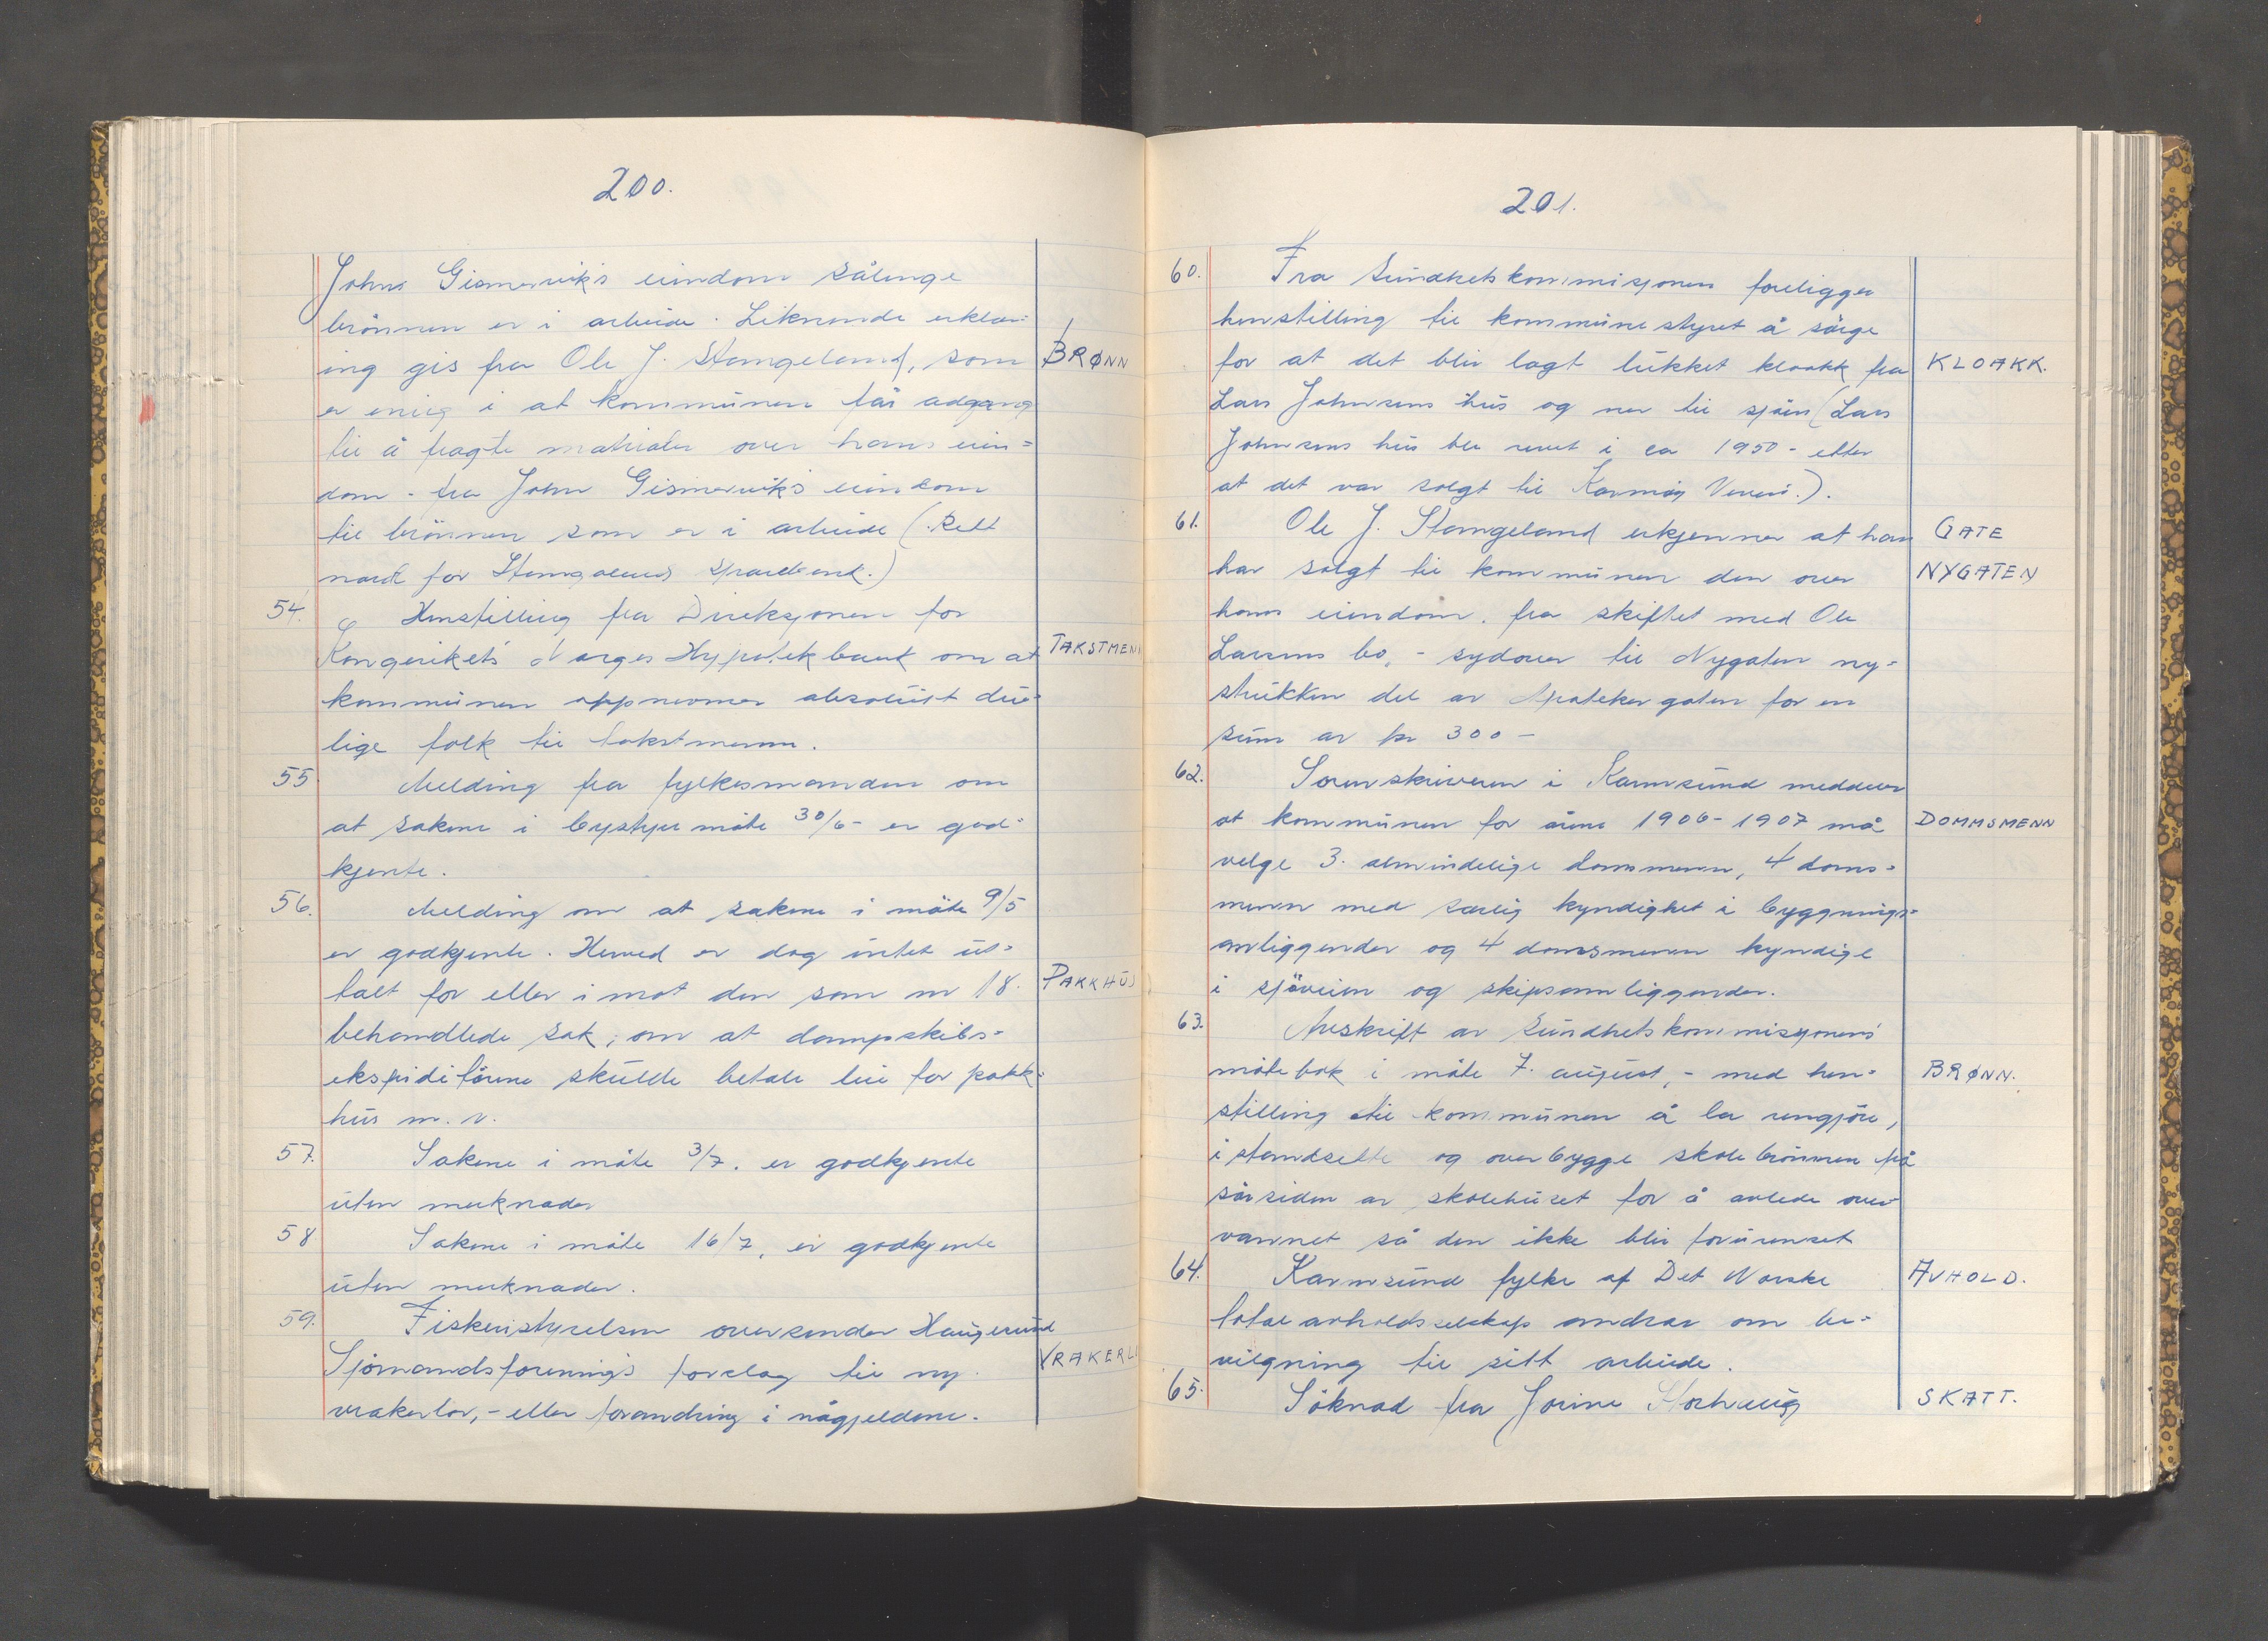 200.
Johns Gismerviks eiendom sålenge
brönnen er i arbeide. Liknende erklær-
ing gis fra Ole J. Stangeland, som
BRØNN
er enig i at kommunen får adgang
til å fragte matrialer over hans eien=
dom - fra John Gismerviks eiendom
til brönnen som er i arbeide (Rett
nord for Stangeland Sparebank.)
54. Henstilling fra Direksjonen for
Kongerikets Norges Hypotekbank om at
TAKSTMENN
kommunen oppnevner absolutt due-
lige folk til takstmenn.
55 Melding fra fylkesmanden om
at sakene i bystyremöte 30/6- er god-
kjente.
56. Melding om at sakene i möte 9/5
er godkjente. Herved er dog intet ut=
talt for eller imot den som nr 18.
PAKKHUS
behandlede sak; om at dampskibs=
ekspiditörene skulde betale leie for pakk-
hus m.v.
57. Sakene i möte 3/7. er godkjente
uten merknader
58 Sakene i möte 16/7, er godkjente
uten merknader.
59. Fiskeristyrelsen oversender Haugesund
Sjömandsforenings forslag til ny
VRAKERLO
vrakerlov, - eller forandring i någjeldene.
201.
60. Fra Sundhetskommisjonen foreligger
henstilling til kommunestyret å sörge
for at det blir lagt lukket kloakk fra
KLOAKK.
Lars Johnsens hus og ner til sjöen (Lars
Johnsens hus ble revet i ca 1950 - etter
at det var solgt til Karmöy Veveri.).
61. Ole J. Stangeland erkjenner at han
GATE
har solgt til kommunen den over
NYGATEN
hans eiendom. fra skiftet med Ole
Larsens bo, - sydover til Nygaten ny=
strukken del av Apotekergaten for en
sum av kr 300 -
62. Sorenskriveren i Karmsund meddeler
at kommunen for årene 1906-1907 må
DOMMSMENN
velge 3. almindelige domsmenn, 4 doms=
menn med særlig kyndighet i bygnings=
anliggender og 4 domsmenn kyndige
i sjöveien og skipsanliggender.
63. Avskrift av Sundhetskommisjonens
mötebok i möte 7. august, - med hen=
BRØNN.
stilling til kommunen å la rengjöre,
istandsette og overbygge skolebrönnen på
sörsiden av skolehuset for å avlede over
vannet så den ikke blir forurenset
64. Karmsund fylke af Det Norske
AVHOLD.
totalavholdsselskap andrar om be=
vilgning til sitt arbeide.
65. Söknad fra Jorine Storhaug
SKATT.